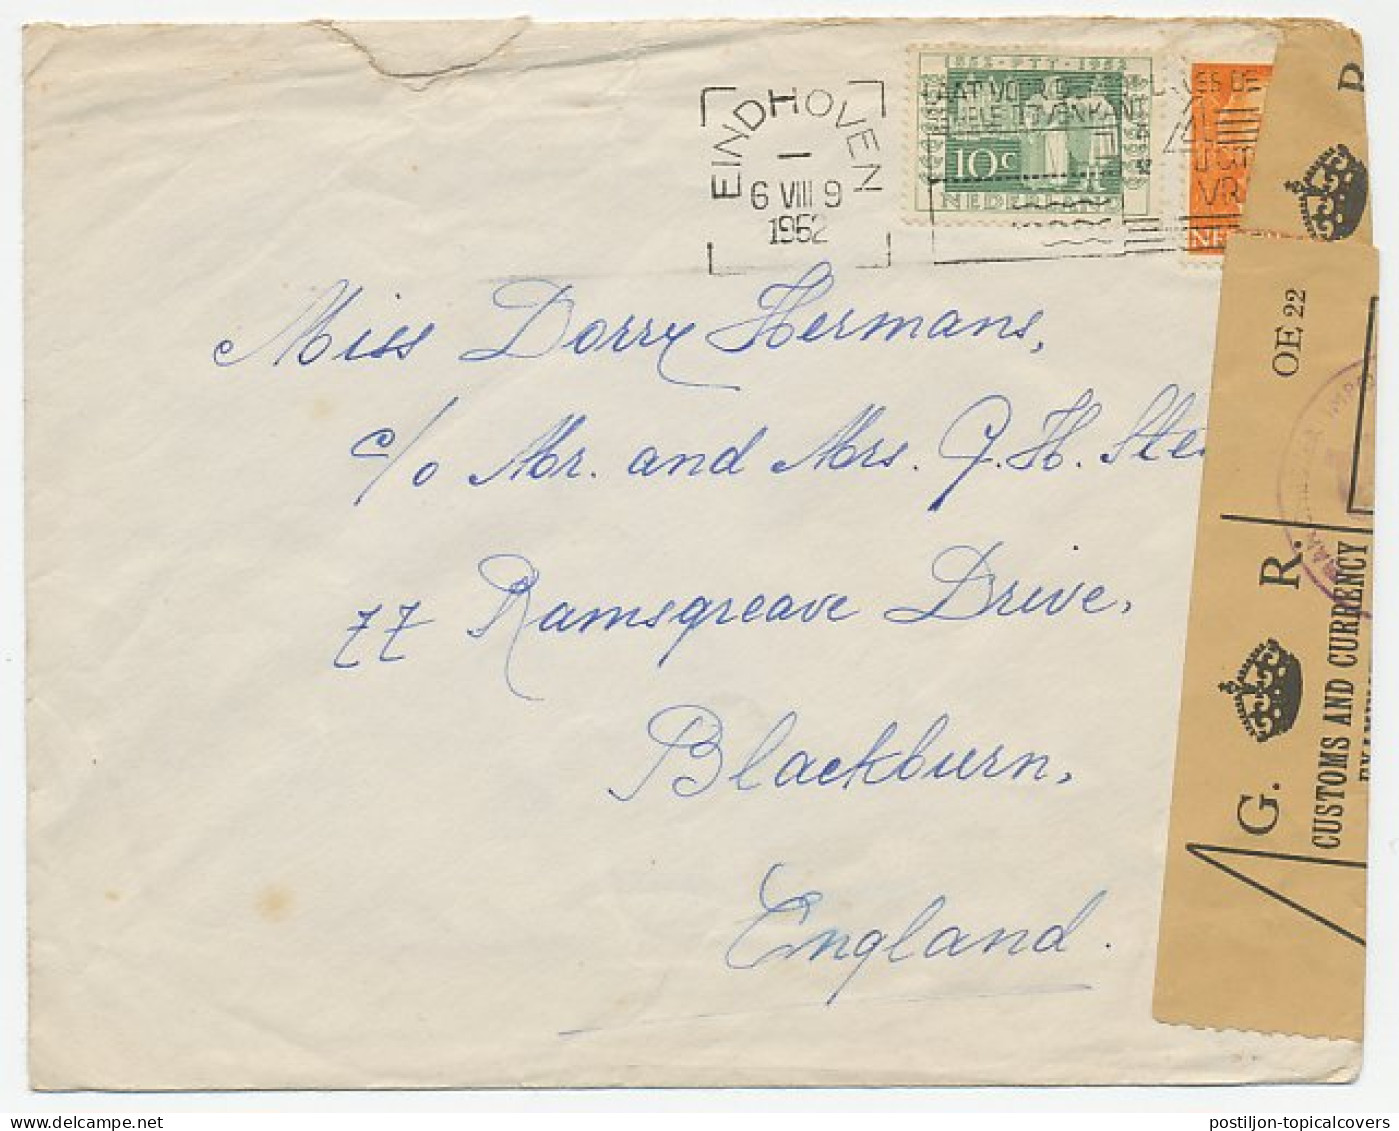 EINDHOVEN
6 VIII 9
1952
1852 · PTT · 1952
10c
NEDERLAND
Miss Dorry Hermans,
c/o Mr. and Mrs. J. H. Ste
77 Ramsgreave Drive,
Blackburn,
England.
R
OE 22
G. R.
CUSTOMS AND CURRENCY
postiljon-topicalcovers